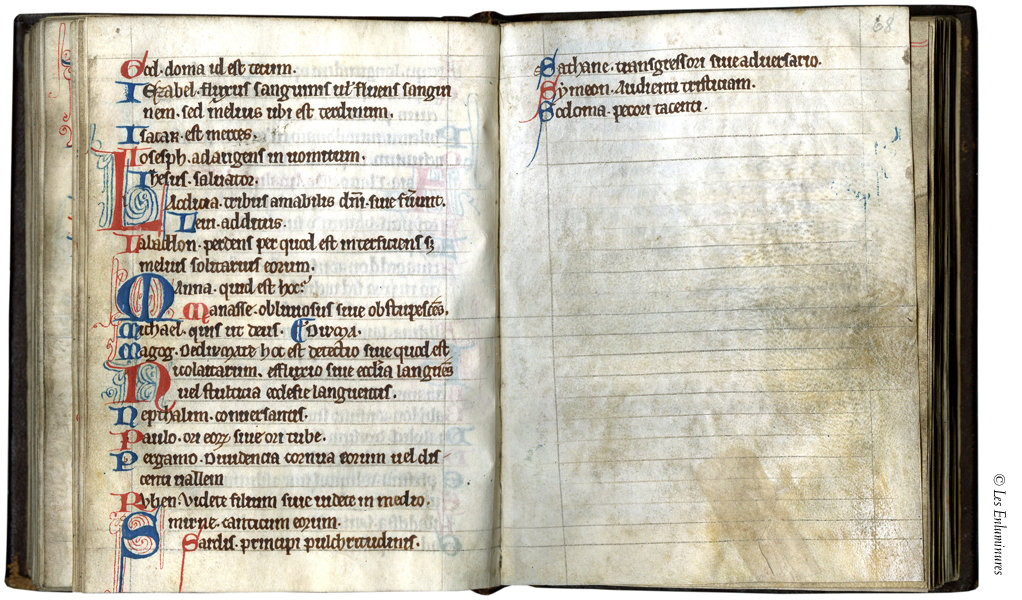 God. doma ul est tectum.
Iezabel. fluxus sanguinis ul' fluens sangui
nem. sed melius ubi est
Isacar. est merces.
Ioseph. ad augens in
Ihesus. saluator.
tribus amabilis dñi. siue
Leui. additus.
Labadon. perdens per quod est interficiens
melius solitarius eorum.
Manna. quid est hoc?
Manasse. obliuiosus siue
Michael. quis ut deus.
Magog. hoc est detectio siue quod est
Nicolaitarum. effluxio siue eccl'ia
uel stulticia ecclesie languentis.
Nepthalim. conuersantis.
Paulo. ori siue ori tube.
Pergamo. Diuidencia cornua eorum uel dis
centi uallem
Ruben. Videte filium siue uidete in medio.
Smirne. canticum eorum.
Sardis. principi pulchritudinis.
68
Sathane. transgressori siue aduersario.
Symeon. Audienti tristiciam.
Sodoma. pecori tacenti.
© Les Enluminures